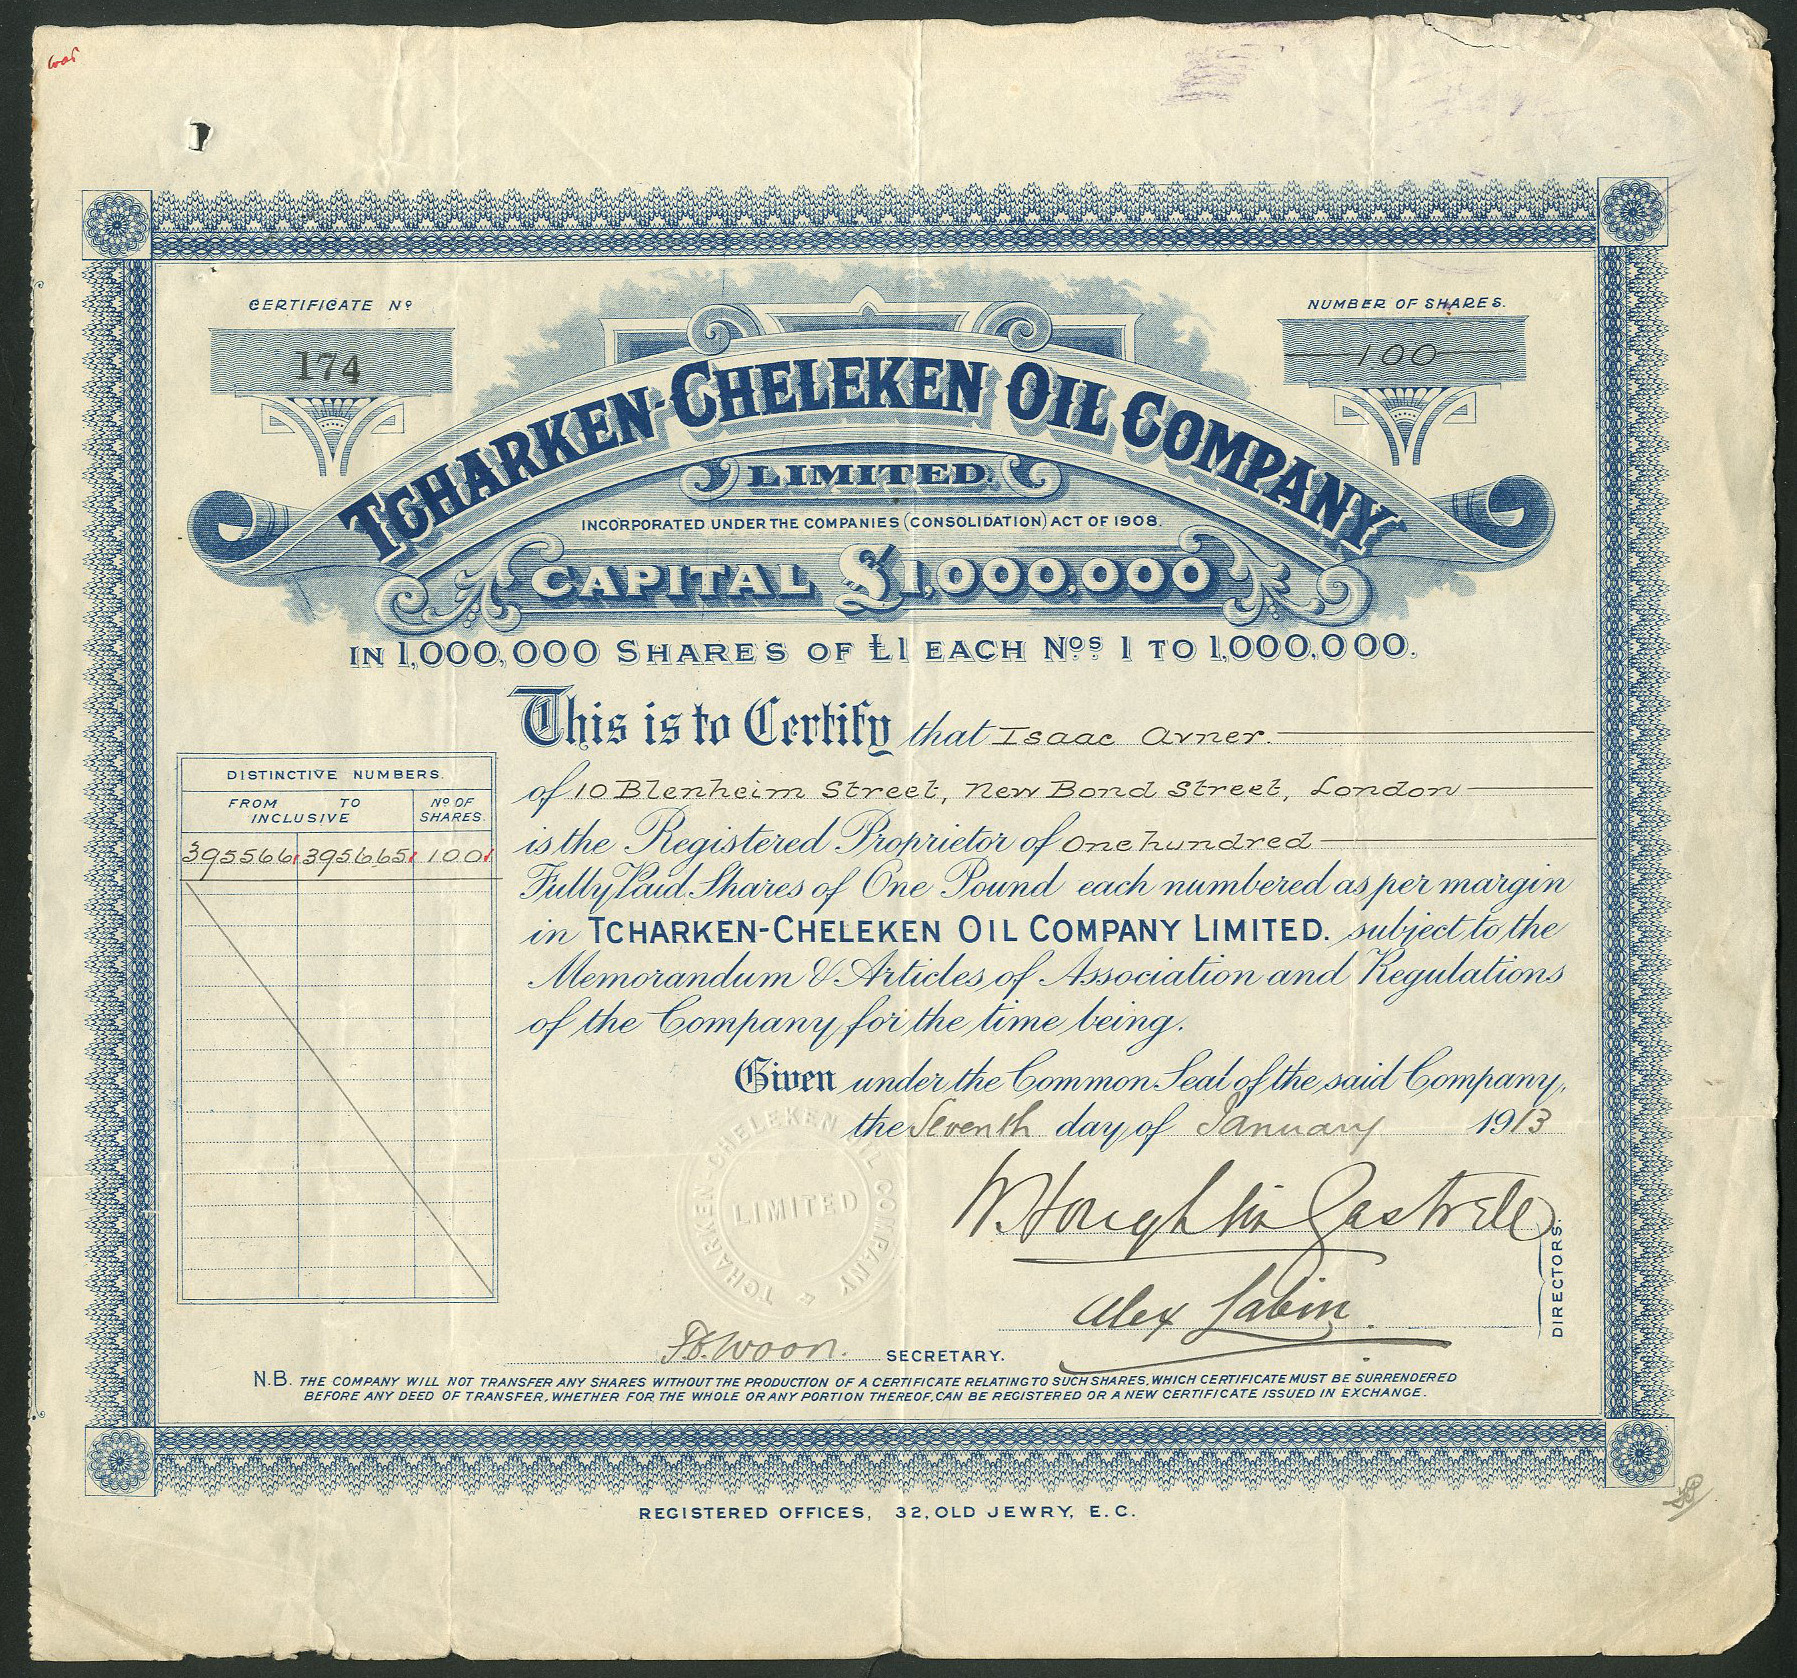 CERTIFICATE Nº
174
NUMBER OF SHARES.
100
TCHARKEN-CHELEKEN OIL COMPANY
LIMITED.
INCORPORATED UNDER THE COMPANIES (CONSOLIDATION) ACT OF 1908.
CAPITAL £1,000,000
IN 1,000,000 SHARES OF £1 EACH Nos 1 TO 1,000,000.
This is to Certify that Isaac Avner.
of 10 Blenheim Street, New Bond Street, London
is the Registered Proprietor of One hundred
Fully Paid Shares of One Pound each numbered as per margin
in TCHARKEN-CHELEKEN OIL COMPANY LIMITED. subject to the
Memorandum & Articles of Association and Regulations
of the Company for the time being.
Given under the Common Seal of the said Company,
the Seventh day of January 1913
DISTINCTIVE NUMBERS.
FROM TO Nº OF
INCLUSIVE SHARES.
395566 395665 100
TCHARKEN-CHELEKEN OIL COMPANY
LIMITED
Alex Labin.
DIRECTORS.
Woon. SECRETARY.
N.B. THE COMPANY WILL NOT TRANSFER ANY SHARES WITHOUT THE PRODUCTION OF A CERTIFICATE RELATING TO SUCH SHARES, WHICH CERTIFICATE MUST BE SURRENDERED
BEFORE ANY DEED OF TRANSFER, WHETHER FOR THE WHOLE OR ANY PORTION THEREOF, CAN BE REGISTERED OR A NEW CERTIFICATE ISSUED IN EXCHANGE.
REGISTERED OFFICES, 32, OLD JEWRY, E.C.